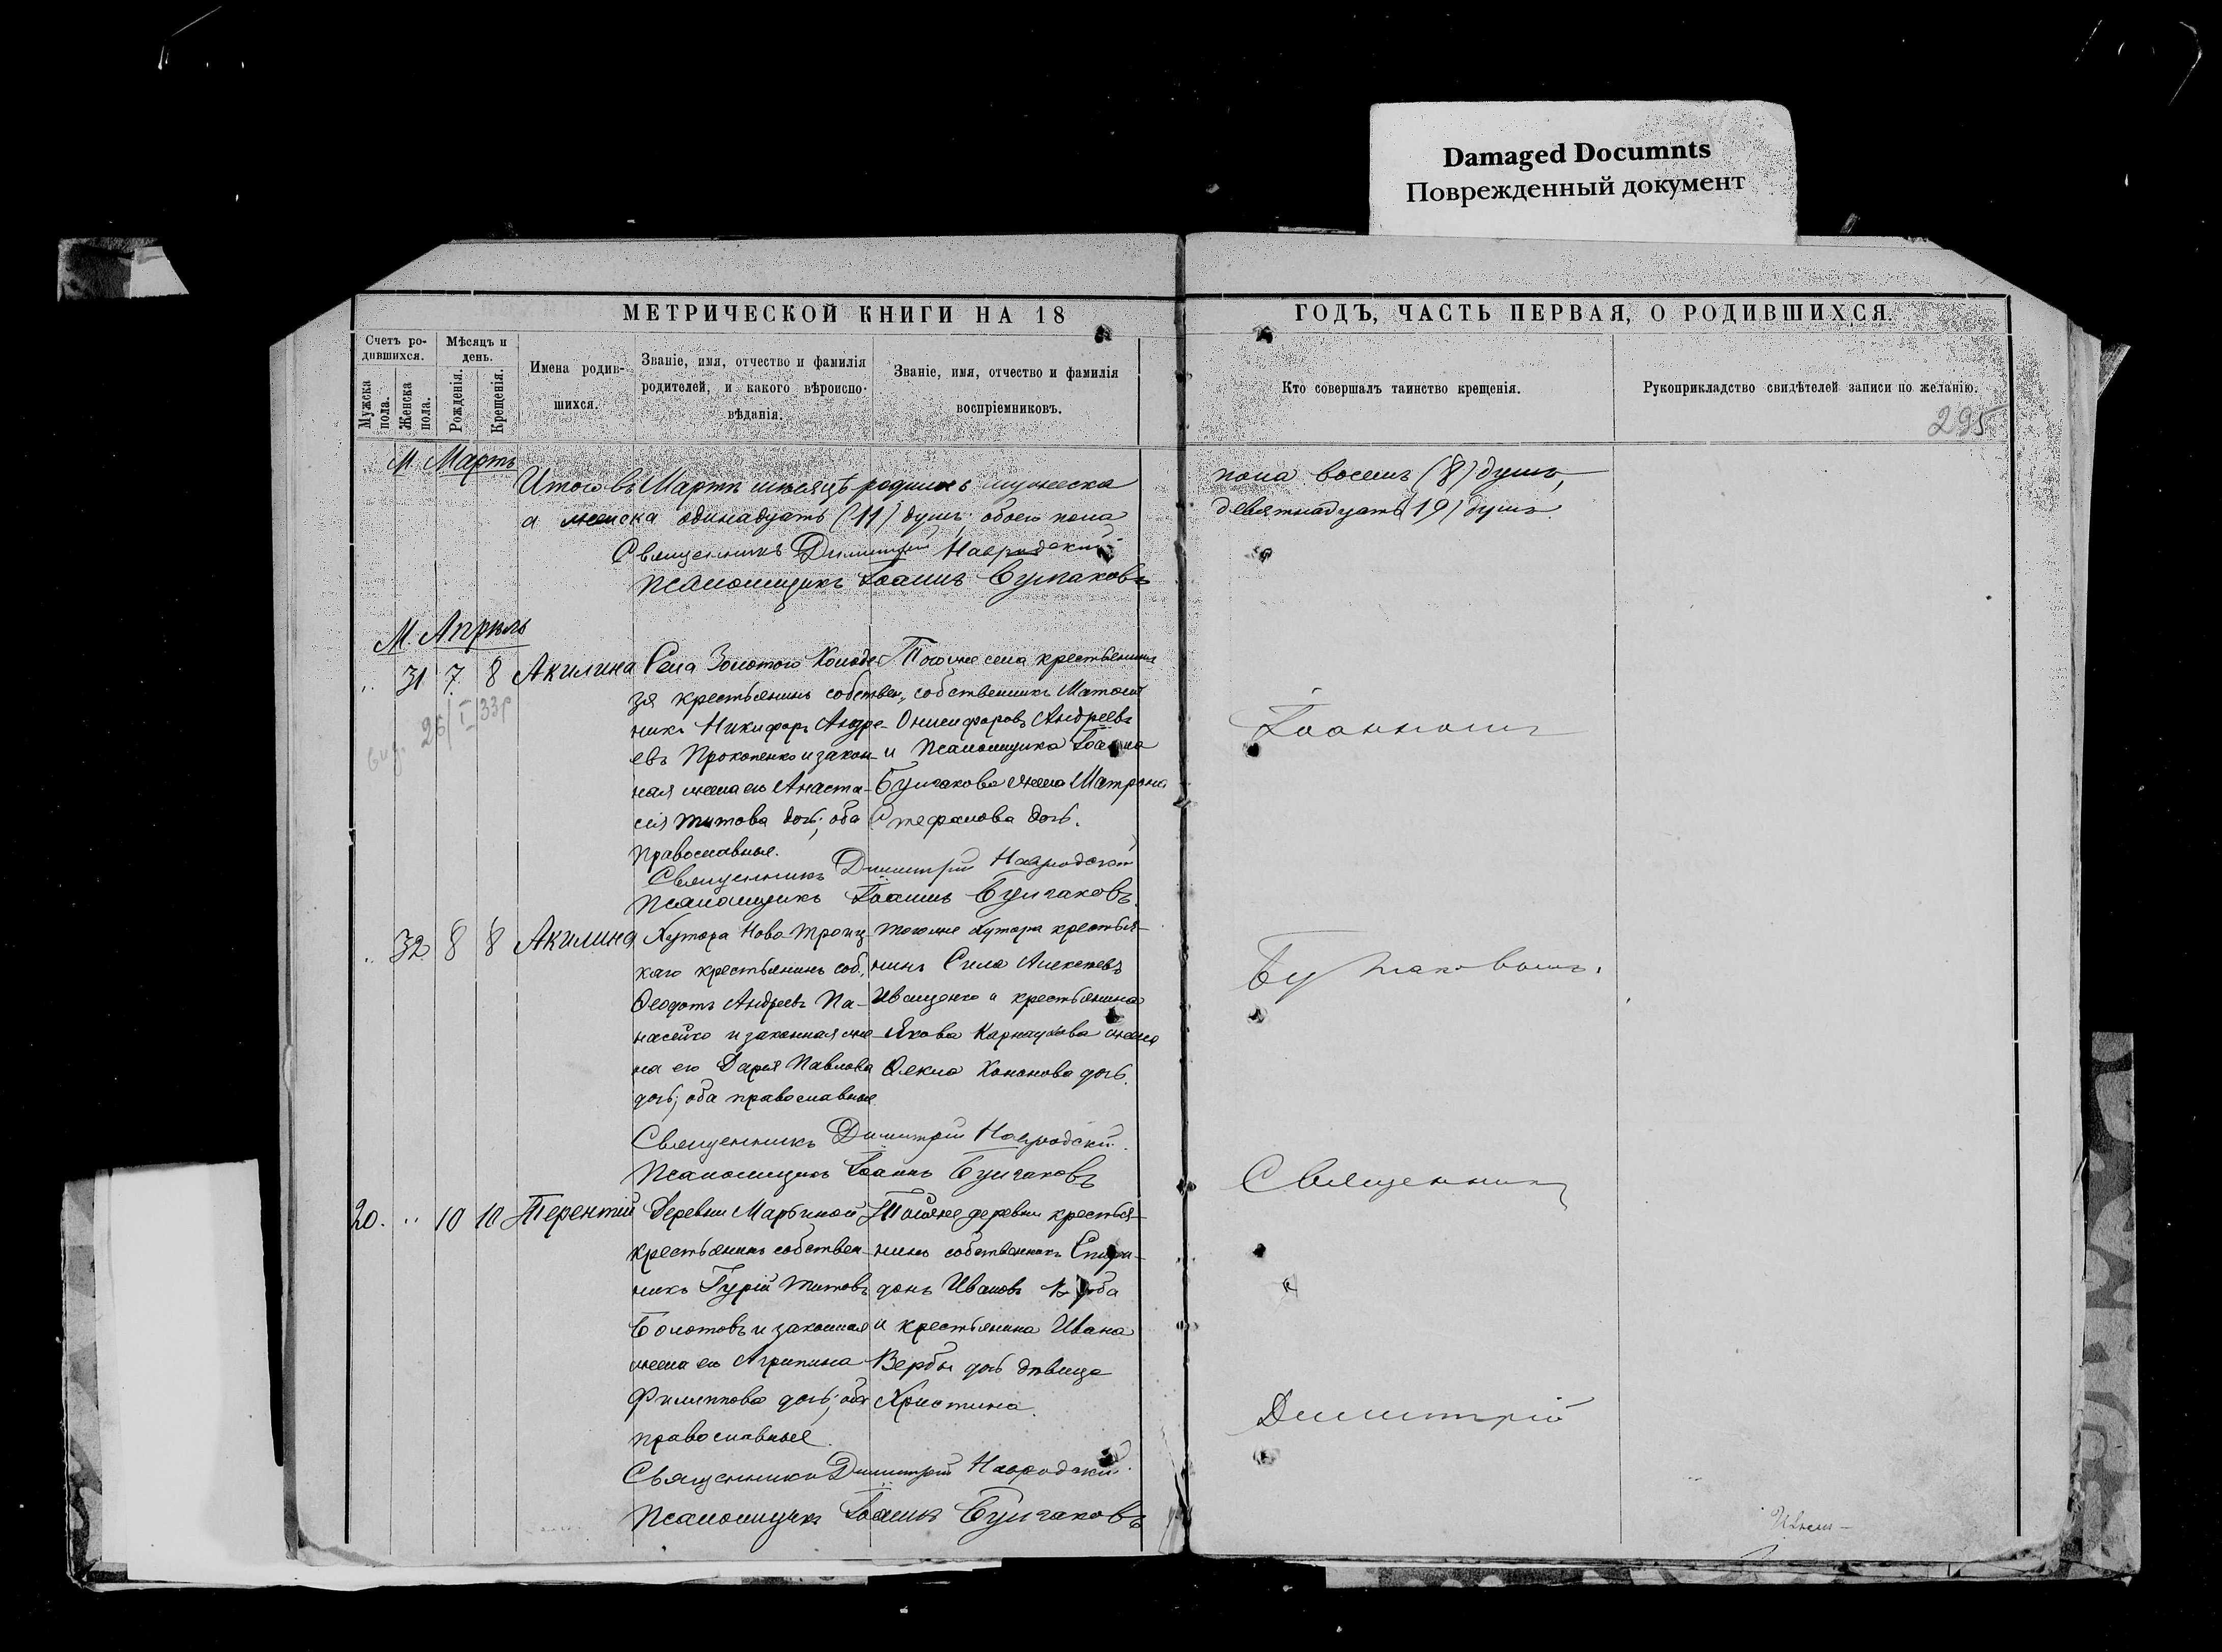 Damaged Documnts
Поврежденный документ
МЕТРИЧЕСКОЙ КНИГИ НА 18
ГОДЪ, ЧАСТЬ ПЕРВАЯ, О РОДИВШИХСЯ.
Счетъ ро-
дившихся.
Мужска пола.
Женска пола.
Мѣсяцъ и день.
Рожденія.
Крещенія.
Имена родив-
шихся.
Званіе, имя, отчество и фамилія
родителей, и какого вѣроиспо-
вѣданія.
Званіе, имя, отчество и фамилія
воспріемниковъ.
Кто совершалъ таинство крещенія.
Рукоприкладство свидѣтелей записи по желанію.
295
М. Мартъ
Итого въ Мартѣ мѣсяцѣ родилось мужеска
пола восемь (8) душъ,
а женска одинадцать (11) душъ; обоего пола
девятнадцать (19) душъ.
Священникъ Димитрій Навродскій
Псаломщикъ Іоаннъ Булгаковъ
М. Апрѣль
31 7 8 Акилина
26/I 33р
Села Золотого Колоде-
зя крестьянинъ собствен-
никъ Никифоръ Андре-
евъ Прокопенко и закон-
ная жена его Анаста-
сія Титова дочь; оба
православные.
Тогоже села крестьянинъ
собственникъ
Онисифоровъ Андреевъ
и псаломщика Іоанна
Булгакова жена Матрона
Стефанова дочь.
Священникъ Димитрій Навродскій
Псаломщикъ Іоаннъ Булгаковъ.
32 8 8 Акилина
Хутора Ново-Троиц-
каго крестьянинъ соб.
Ѳеодотъ Андреевъ Па-
насейко и законная же-
на его Дарія Павлова
дочь; оба православные
тогоже хутора крестья-
нинъ Сила Алексѣевъ
Иващенко и крестьянина
Якова Карнаухова жена
Ѳекла Кононова дочь.
Священникъ Димитрій Навродскій.
Псаломщикъ Іоаннъ Булгаковъ
20. 10 10 Терентій
Деревни Марьиной
крестьянинъ собствен-
никъ Гурій Титовъ
Болотовъ и законная
жена его Агрипина
Филиппова дочь; оба
православные.
Тойже деревни крестья-
нинъ собственникъ Спири-
донъ Ивановъ
и крестьянина Ивана
Вербы дочь дѣвица
Христина.
Священникъ Димитрій Навродскій.
Псаломщикъ Іоаннъ Булгаковъ
Священникъ
Димитрій